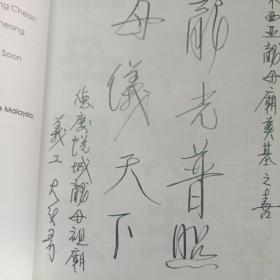 ng Cheon
heong
Soon
e Malaysia.
西亚龍母廟奠基之喜
龍光普照
母儀天下
德慶悦城龍母祖廟
義工